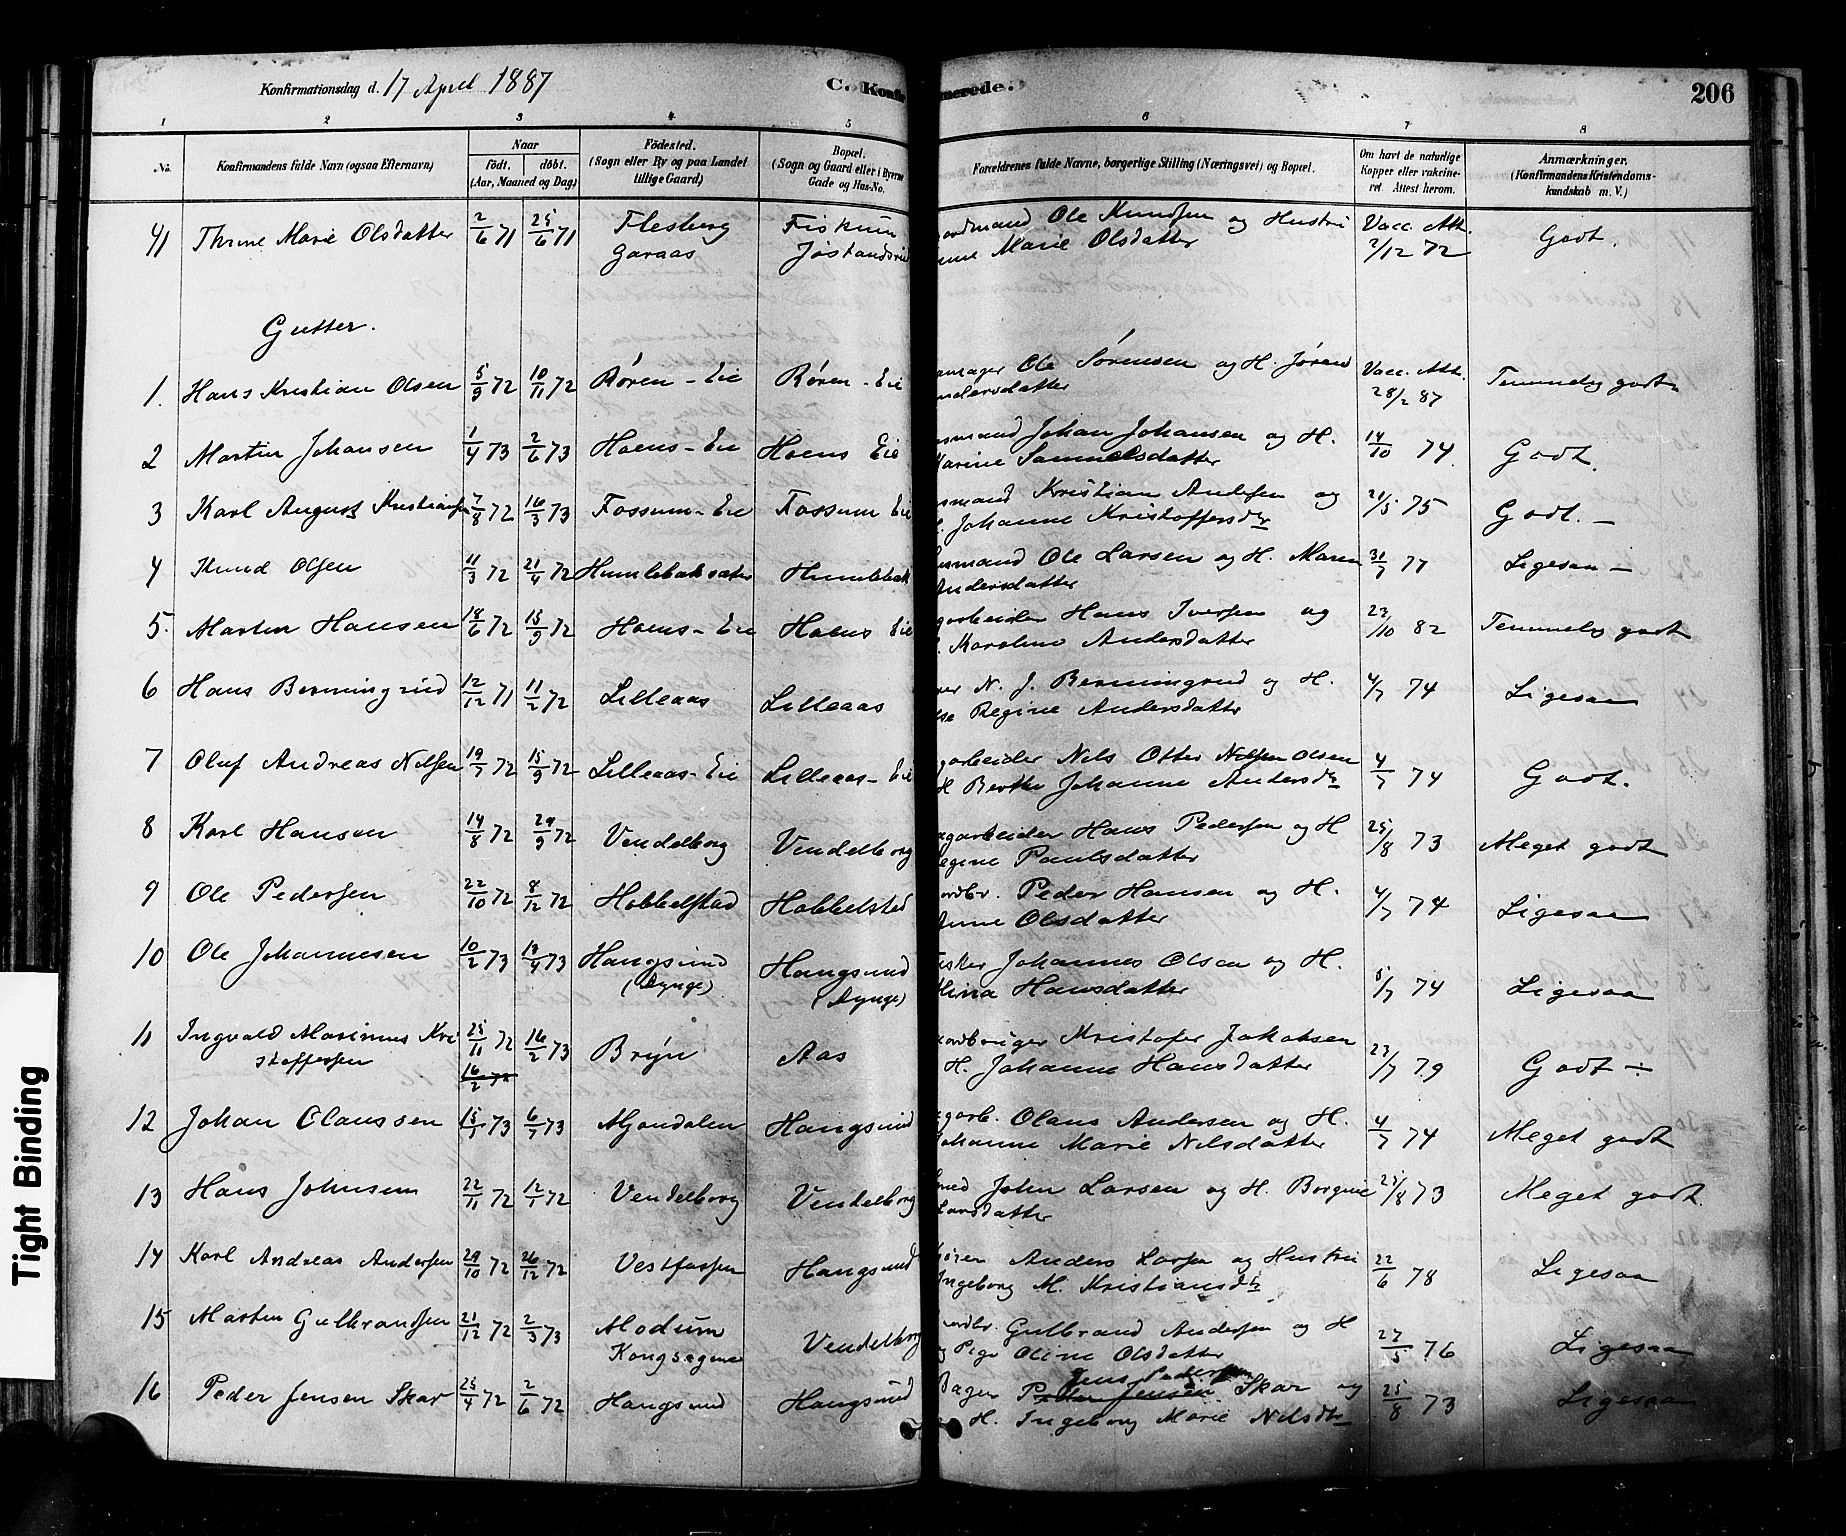 Konfirmationsdag d. 17 April 1887
C. Konfir merede. 206
1 2 3 4 5 6 7 8
No. Konfirmandens fulde Navn (ogsaa Efternavn) Naar født. døbt. (Aar, Maaned og Dag) Födested. (Sogn eller By og paa Landet tillige Gaard) Bopæl. (Sogn og Gaard eller i Byerne Gade og Hus-No. Forældrenes fulde Navne, borgerlige Stilling (Næringsvei) og Bopæl. Om havt de naturlige Kopper eller vakcineret. Attest herom. Anmærkninger. (Konfirmandens Kristendomskundskab m. V.)
41 Thrine Marie Olsdatter 2/6 71 25/6 71 Flesberg Fiskum ordmand Ole Knudsen og Hustru Vacc. Att. Godt.
Garaas Marie Olsdatter 2/12 72
Gutter.
1. Hans Kristian Olsen 5/9 72 10/11 72 Røren - Eie Røren - Eie Ole Sørensen og H. Jøran Vacc. Att. Temmelig godt
ndersdatter 28/2 87
2 Martin Johansen 1/4 73 2/6 73 Hoens - Eie Hoens Eie smand Johan Johansen og H. 14/10 74. Godt.
Marine Samuelsdatter
3 Karl August Kristiansen 7/8 72 16/3 73 Fossum - Eie Fossum Eie smand Kristian Andersen og 21/5 75 Godt. -
Johanne Kristoffersdtr
4 Knud Olsen 11/3 72 21/4 72 Humlebæksæter Humlebæk usmand Ole Larsen og H. Maren 31/7 77 Ligesaa -
Andersdatter
5. Martin Hansen 18/6 72 15/9 72 Hoens - Eie Hoens Eie garbeider Hans Iversen og 23/10 82 Temmelig godt
Karoline Andersdatter
6 Hans Bermingrud 12/12 71 11/2 72 Lilleaas Lilleaas N. J. Bermingrud og H. 4/7 74 Ligesaa
Regine Andersdatter
7 Oluf Andreas Nilsen 19/7 72 15/9 72 Lilleaas - Eie Lilleaas - Eie garbeider Nils Otter Nilsen Olsen 4/7 74 Godt.
H Berthe Johanne Andersdtr
8 Karl Hansen 14/8 72 29/9 72 Vendelborg Vendelborg garbeider Hans Pedersen og H 25/8 73 Meget godt
egine Paulsdatter
9 Ole Pedersen 22/10 72 8/12 72 Hobbelstad Hobbelsted ordbr. Peder Hansen og H. 4/7 74 Ligesaa
Anne Olsdatter
10 Ole Johannesen 10/2 73 14/4 73 Hangsund Hangsund isker Johannes Olsen og H. 5/7 74 Ligesaa
(Dynge) (Dynge) Hansdatter
11 Ingvald Marinius Kri 25/11 72 16/2 73 Bryn Aas ordbruger Kristofer Jakobsen 23/7 79 Godt
stoffersen 16/2 72 H. Johanne Hansdatter
12 Johan Claussen 15/1 73 6/7 73 Mjøndalen Hangsund garb. Olaus Andersen og H. 4/7 74 Meget godt
ohanne Marie Nilsdatter
13 Hans Johnsen 22/11 72 12/1 72 Vendelborg Vendelborg med John Larsen og H. Borgine 25/8 73 Meget godt
Larsdatter
14 Karl Andreas Andersen 29/10 72 26/12 72 Vestfossen Hangsund Anders Larsen og Hustru 22/6 78 Ligesaa
Ingeborg M. Kristiansdtr
15 Martin Gulbrandsen 21/12 72 2/3 73 Modum Vendelborg ordbr. Gulbrand Andersen og H 27/5 76 Ligesaa
Kongsegne Pige Oline Olsdatter
16 Peder Jensen Skar 25/4 72 2/6 72 Hangsund Hangsund Bager Peder Jensen Jens Pedersen Skar og 25/8 73 Ligesaa
H. Ingeborg Marie Nilsdtr
Tight Binding